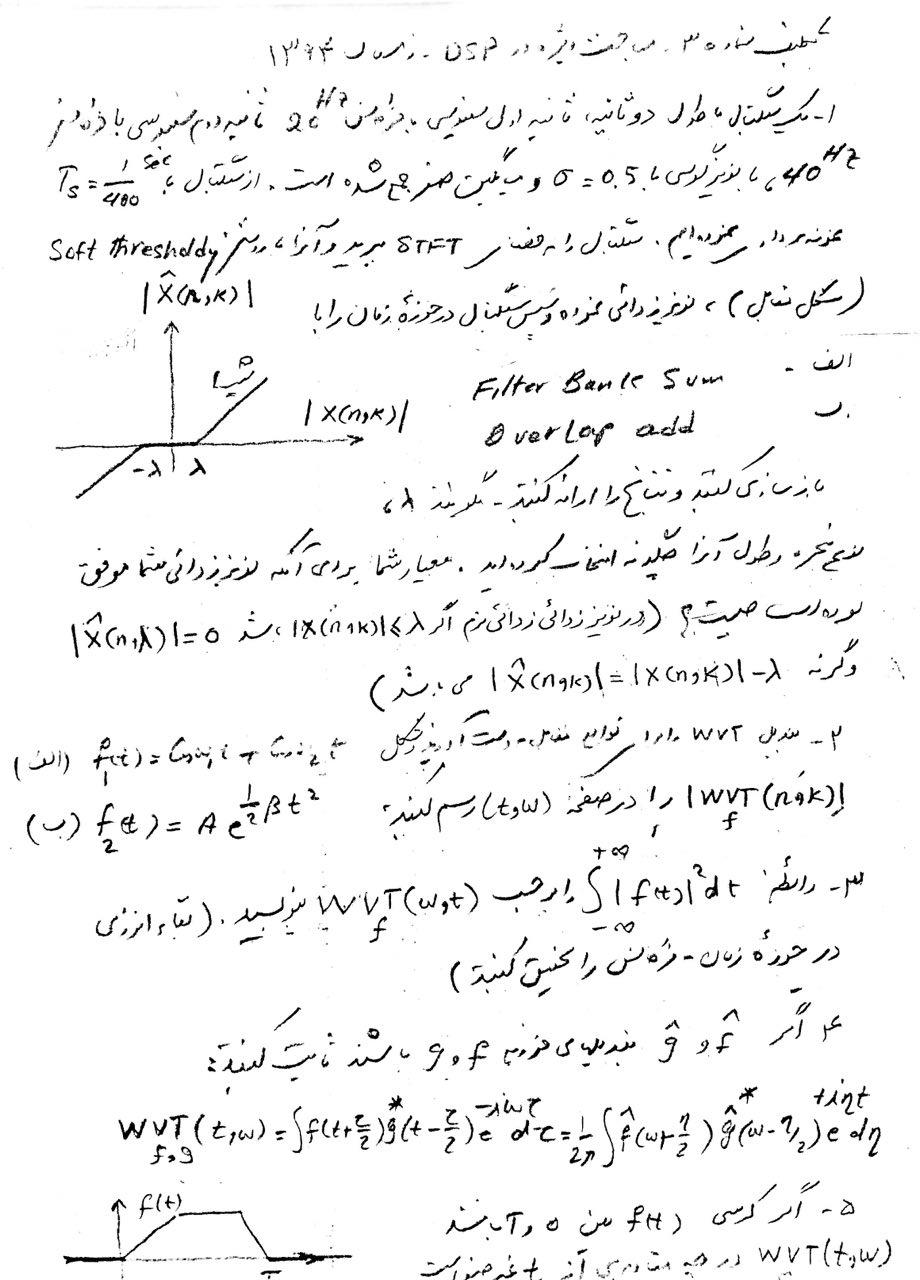 تکلیف شماره ۳ - مباحث ویژه در DSP - ۱۳۹۴
۱- یک سیگنال با طول دو ثانیه، ثانیه اول سینوسی با فرکانس 20 Hz ثانیه دوم سینوسی با فرکانس
40 Hz، با نویز گوسی با σ = 0.5 و میانگین صفر جمع شده است. از سیگنال با Ts = 1/400 sec
نمونه برداری نموده ایم. سیگنال را به فضای STFT ببرید و آنرا با روش Soft thresholdy
(شکل مقابل)، نویززدائی نموده و سپس سیگنال در حوزهٔ زمان را با
|X̂(n,k)|
الف - Filter Bank Sum
شیب ۱
|X(n,k)|
ب - Overlap add
-λ λ
بازسازی کنید و نتایج را ارائه کنید - بگوئید λ،
نوع پنجره و طول آنرا چگونه انتخاب کرده اید. معیار شما برای آنکه نویززدائی شما موفق
بوده است چیست؟ (در نویز زدائی زدائی نرم اگر |X(n,k)| ≤ λ باشد |X̂(n,λ)| = 0
وگرنه |X̂(n,k)| = |X(n,k)| - λ می باشد)
۲- تبدیل WVT را برای توابع مقابل بدست آورید و شکل (الف) f₁(t) = Cosω₁t + Cosω₂t
|WVT_f(n,k)| را در صفحهٔ (t,ω) رسم کنید: (ب) f₂(t) = A e^{½βt²}
۳- رابطهٔ ∫_{-∞}^{+∞} |f(t)|² dt را برحسب WVT_f(ω,t) بنویسید. (بقاء انرژی
در حوزهٔ زمان - فرکانس را تحقیق کنید)
۴ اگر f̂ و ĝ تبدیلهای فوریه f و g باشند ثابت کنید:
WVT_{f,g}(t,ω) = ∫f(t+τ/2) g*(t-τ/2) e^{-iωτ} dτ = 1/2π ∫f̂(ω+η/2) ĝ*(ω-η/2) e^{+iηt} dη
۵- اگر f(t) بین 0 و T باشد
f(t)
WVT(t,ω) در چه t غیر صفر است
T